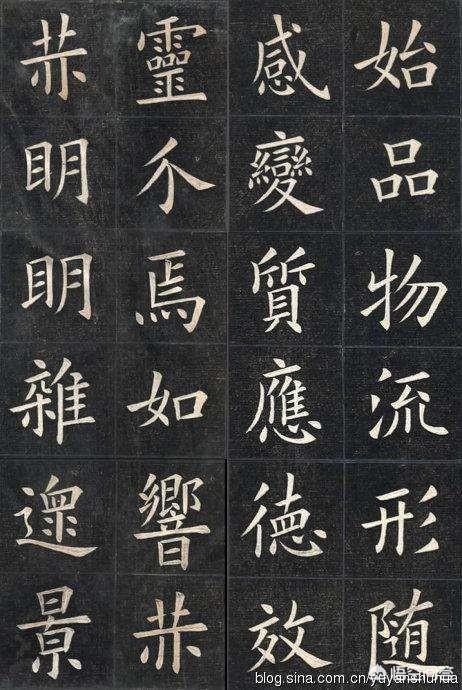 始品物流形随
感變質應德效
靈介焉如響赫
赫眀眀雜遝景
blog.sina.com.cn/yuyanshuhua